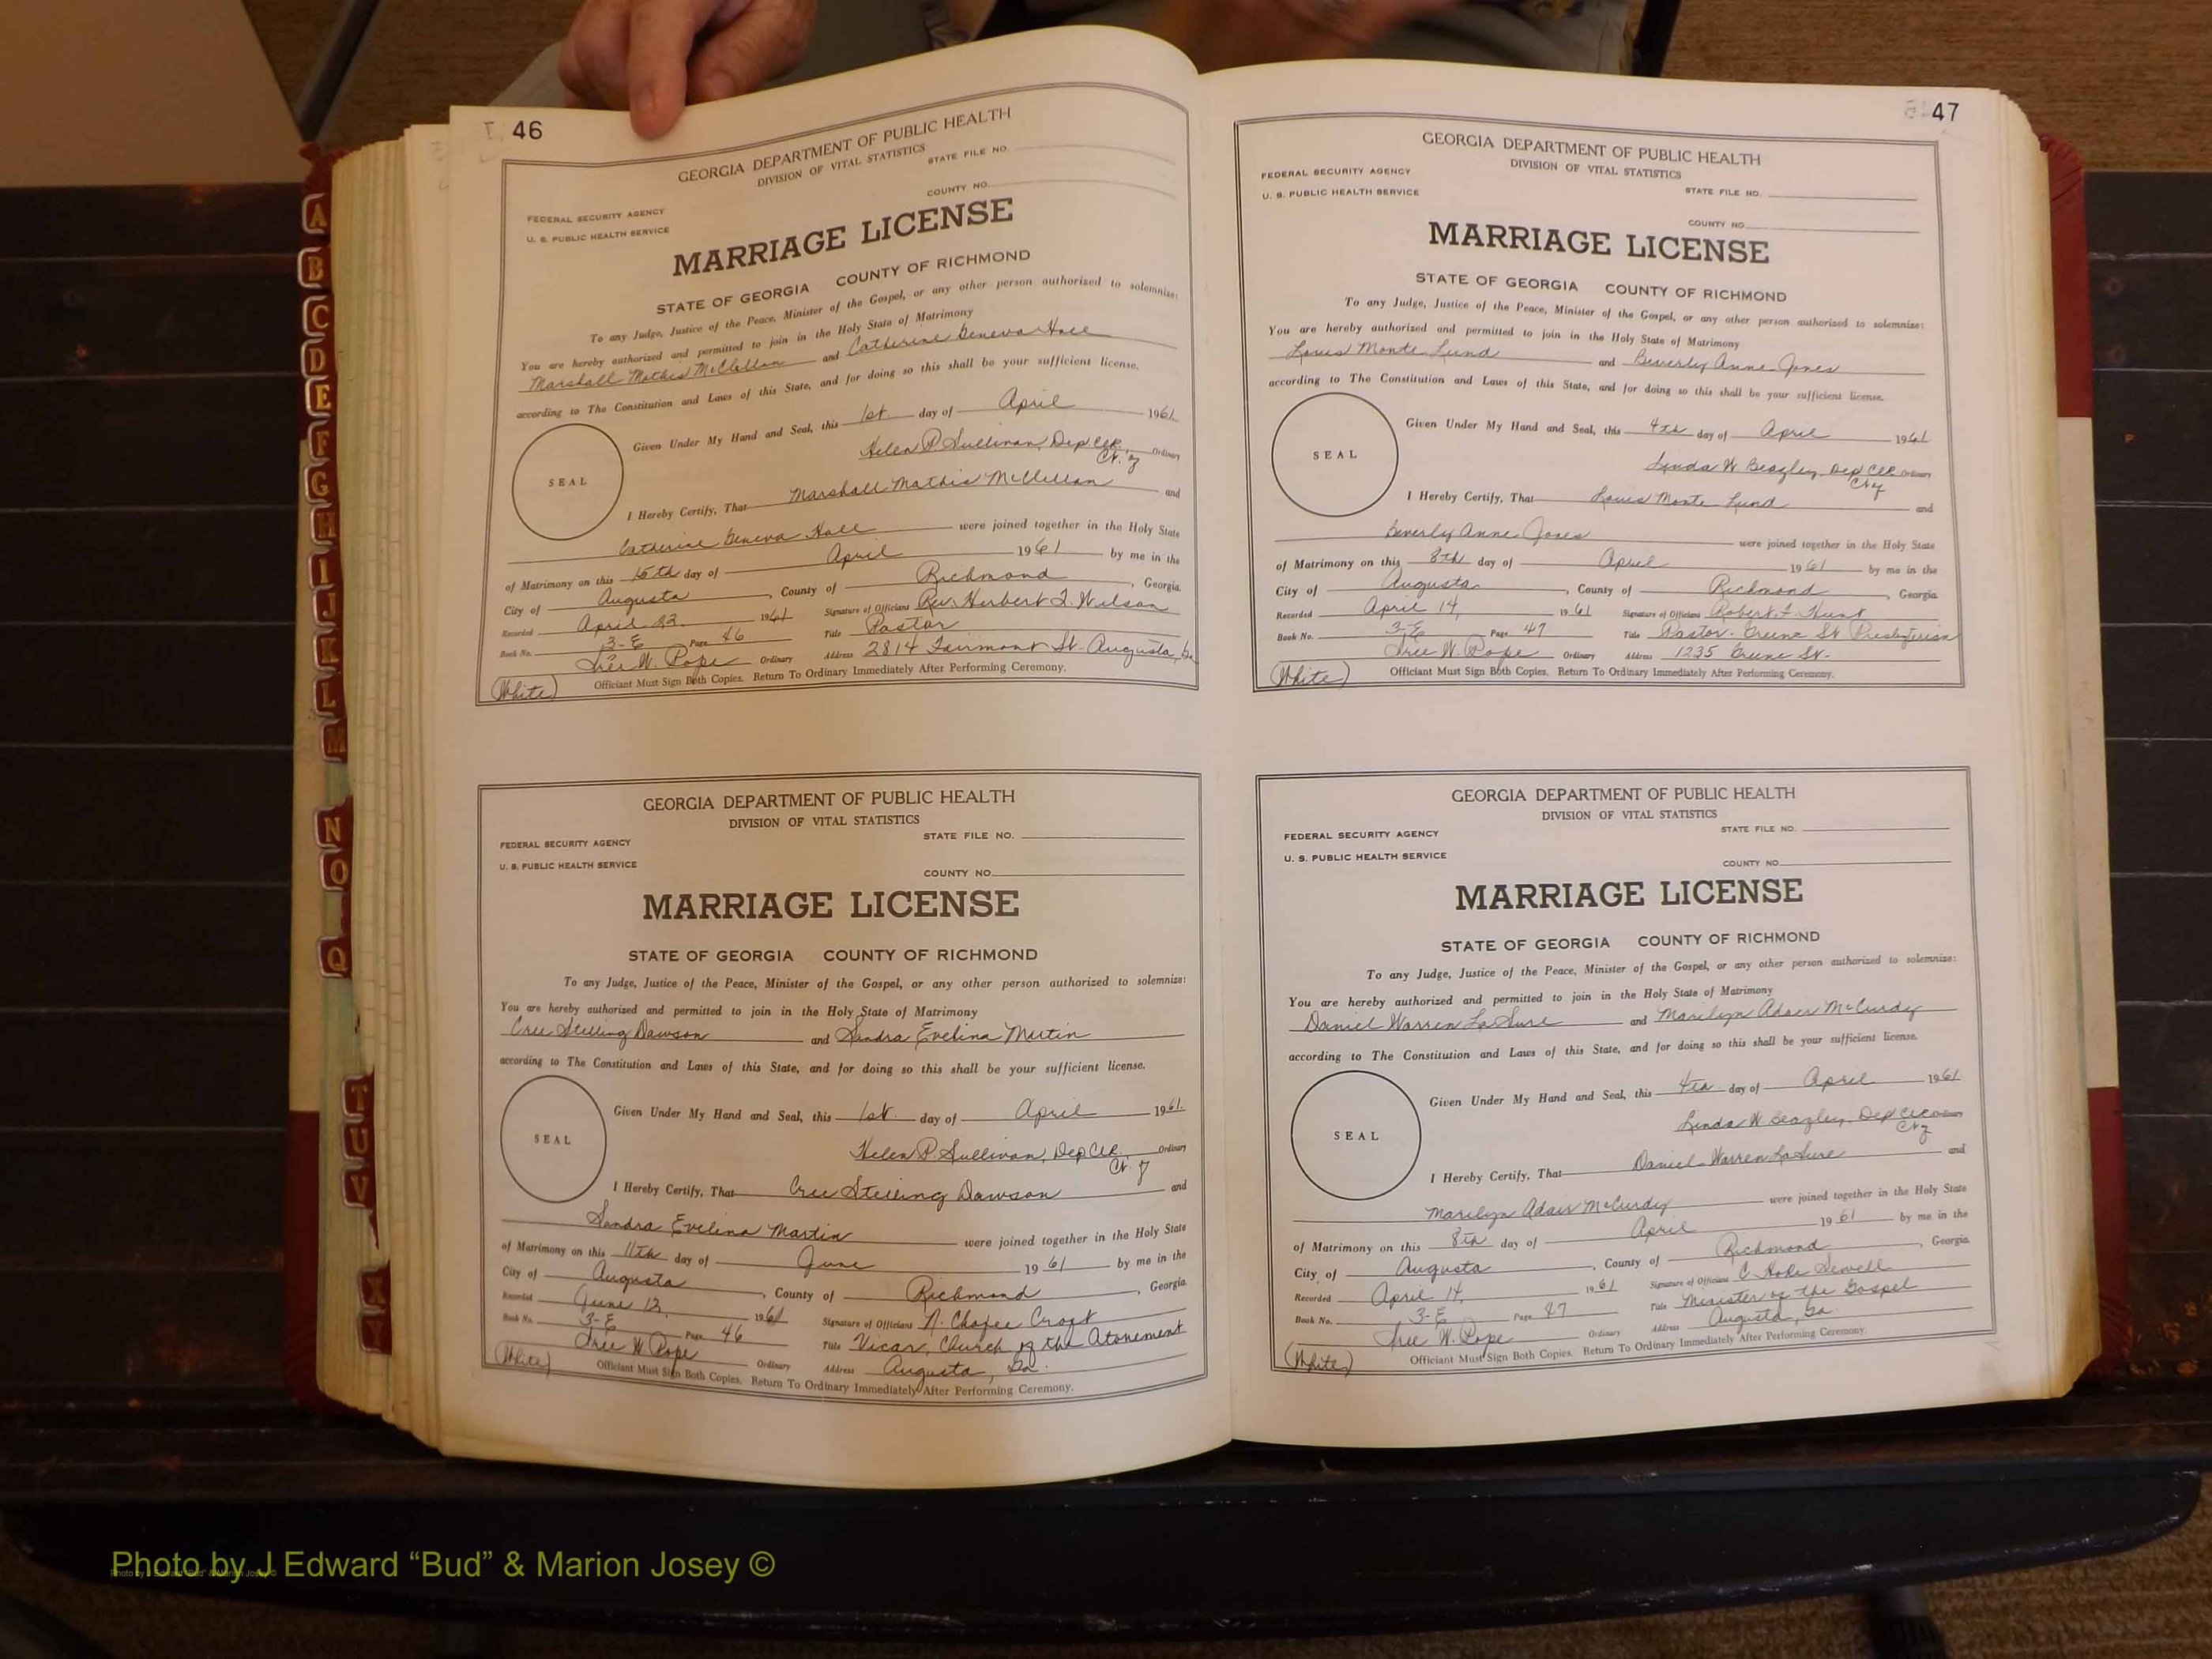 46
GEORGIA DEPARTMENT OF PUBLIC HEALTH
DIVISION OF VITAL STATISTICS
STATE FILE NO.
COUNTY NO.
FEDERAL SECURITY AGENCY
U. S. PUBLIC HEALTH SERVICE
MARRIAGE LICENSE
STATE OF GEORGIA COUNTY OF RICHMOND
To any Judge, Justice of the Peace, Minister of the Gospel, or any other person authorized to solemnize:
You are hereby authorized and permitted to join in the Holy State of Matrimony
Marshall Mathis McClellan and Catherine Geneva Hall
according to The Constitution and Laws of this State, and for doing so this shall be your sufficient license.
Given Under My Hand and Seal, this 1st day of April 1961
SEAL
Helen P. Sullivan, Dep Clk. Ordinary
I Hereby Certify, That Marshall Mathis McClellan and
Catherine Geneva Hall were joined together in the Holy State
of Matrimony on this 15th day of April 1961 by me in the
City of Augusta, County of Richmond, Georgia.
Recorded April 23 1961 Signature of Officiant Rev. Herbert J. Wilson
Book No. 3-E Page 46 Title Pastor
W. Pope Ordinary Address 2814 Fairmont St. Augusta, Ga
(White) Officiant Must Sign Both Copies. Return To Ordinary Immediately After Performing Ceremony.
GEORGIA DEPARTMENT OF PUBLIC HEALTH
DIVISION OF VITAL STATISTICS
STATE FILE NO.
FEDERAL SECURITY AGENCY
U. S. PUBLIC HEALTH SERVICE
COUNTY NO.
MARRIAGE LICENSE
STATE OF GEORGIA COUNTY OF RICHMOND
To any Judge, Justice of the Peace, Minister of the Gospel, or any other person authorized to solemnize:
You are hereby authorized and permitted to join in the Holy State of Matrimony
Cree Stelling Dawson and Sandra Evelina Martin
according to The Constitution and Laws of this State, and for doing so this shall be your sufficient license.
Given Under My Hand and Seal, this 1st day of April 1961
SEAL
Helen P. Sullivan, Dep Clk. Ordinary
I Hereby Certify, That Cree Stelling Dawson and
Sandra Evelina Martin were joined together in the Holy State
of Matrimony on this 11th day of June 1961 by me in the
City of Augusta, County of Richmond, Georgia
Recorded June 12 1961 Signature of Officiant N. Chafee Croft
Book No. 3-E Page 46 Title Vicar, Church of the Atonement
W. Pope Ordinary Address Augusta, Ga.
(White) Officiant Must Sign Both Copies. Return To Ordinary Immediately After Performing Ceremony.
47
GEORGIA DEPARTMENT OF PUBLIC HEALTH
DIVISION OF VITAL STATISTICS
FEDERAL SECURITY AGENCY
U. S. PUBLIC HEALTH SERVICE
STATE FILE NO.
COUNTY NO.
MARRIAGE LICENSE
STATE OF GEORGIA COUNTY OF RICHMOND
To any Judge, Justice of the Peace, Minister of the Gospel, or any other person authorized to solemnize:
You are hereby authorized and permitted to join in the Holy State of Matrimony
Louis Monte Lund and Beverly Anne Jones
according to The Constitution and Laws of this State, and for doing so this shall be your sufficient license.
Given Under My Hand and Seal, this 4th day of April 1961
SEAL
Linda W Beazley, Dep Clk Ordinary
I Hereby Certify, That Louis Monte Lund and
Beverly Anne Jones were joined together in the Holy State
of Matrimony on this 8th day of April 1961 by me in the
City of Augusta, County of Richmond, Georgia.
Recorded April 14, 1961 Signature of Officiant Robert F. Hunt
Book No. 3-E Page 47 Title Pastor - Greene St Presbyterian
W. Pope Ordinary Address 1235 Greene St.
(White) Officiant Must Sign Both Copies. Return To Ordinary Immediately After Performing Ceremony.
GEORGIA DEPARTMENT OF PUBLIC HEALTH
DIVISION OF VITAL STATISTICS
STATE FILE NO.
FEDERAL SECURITY AGENCY
U. S. PUBLIC HEALTH SERVICE
COUNTY NO.
MARRIAGE LICENSE
STATE OF GEORGIA COUNTY OF RICHMOND
To any Judge, Justice of the Peace, Minister of the Gospel, or any other person authorized to solemnize:
You are hereby authorized and permitted to join in the Holy State of Matrimony
Daniel Warren LaSure and Marilyn Adair McCurdy
according to The Constitution and Laws of this State, and for doing so this shall be your sufficient license.
Given Under My Hand and Seal, this 4th day of April 1961
SEAL
Linda W Beazley, Dep Clk Ordinary
I Hereby Certify, That Daniel Warren LaSure and
Marilyn Adair McCurdy were joined together in the Holy State
of Matrimony on this 8th day of April 1961 by me in the
City of Augusta, County of Richmond, Georgia
Recorded April 14, 1961 Signature of Officiant C Hoke Sewell
Book No. 3-E Page 47 Title Minister of the Gospel
W. Pope Ordinary Address Augusta, Ga
(White) Officiant Must Sign Both Copies. Return To Ordinary Immediately After Performing Ceremony.
A
B
C
D
E
F
G
H
I
J
K
L
M
N
O
Q
T
U
V
X
Y
Photo by J Edward “Bud” & Marion Josey ©
Photo by J Edward "Bud" & Marion Josey ©